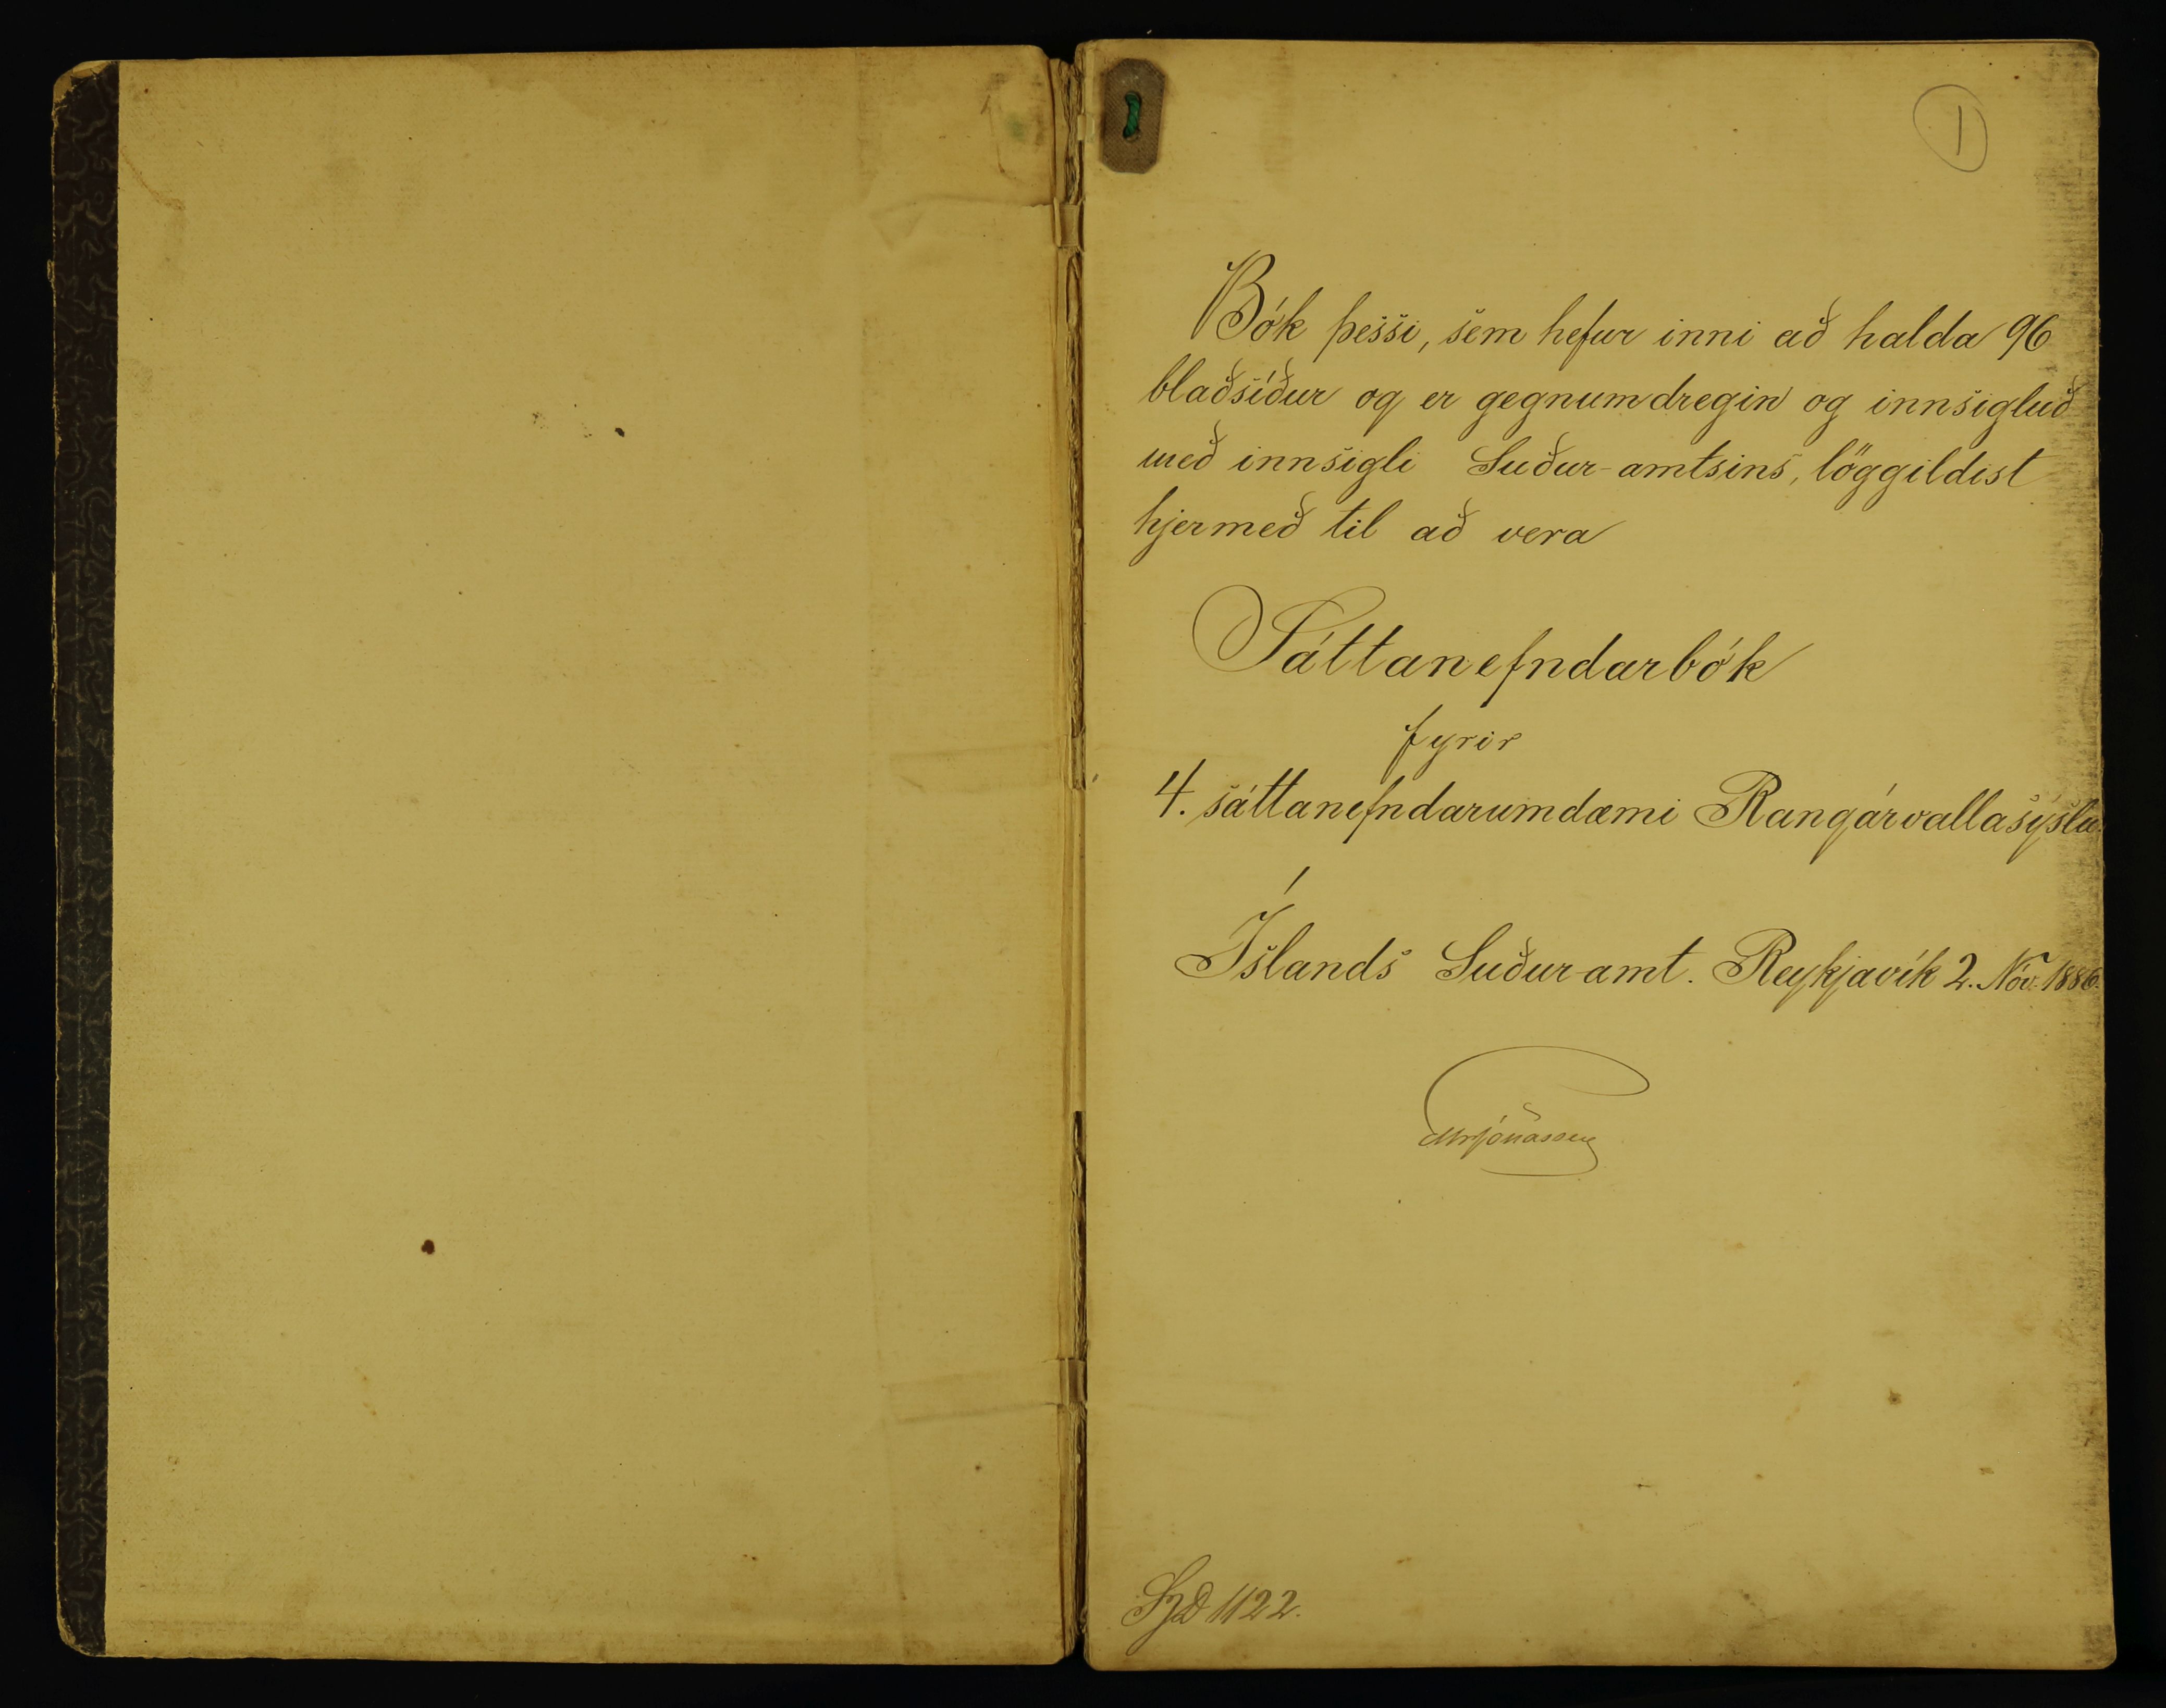 1
Bók þessi, sem hefur inni að halda 96
blaðsíður og er gegnumdregin og innsigluð
með innsigli Suður-amtsins, löggildist
hjermeð til að vera
Sáttanefndarbók
fyrir
4. sáttanefndarumdæmi Rangárvallasýslu.
Íslands Suður-amt. Reykjavík 2. Nóv. 1886.
Jónassen
1122.